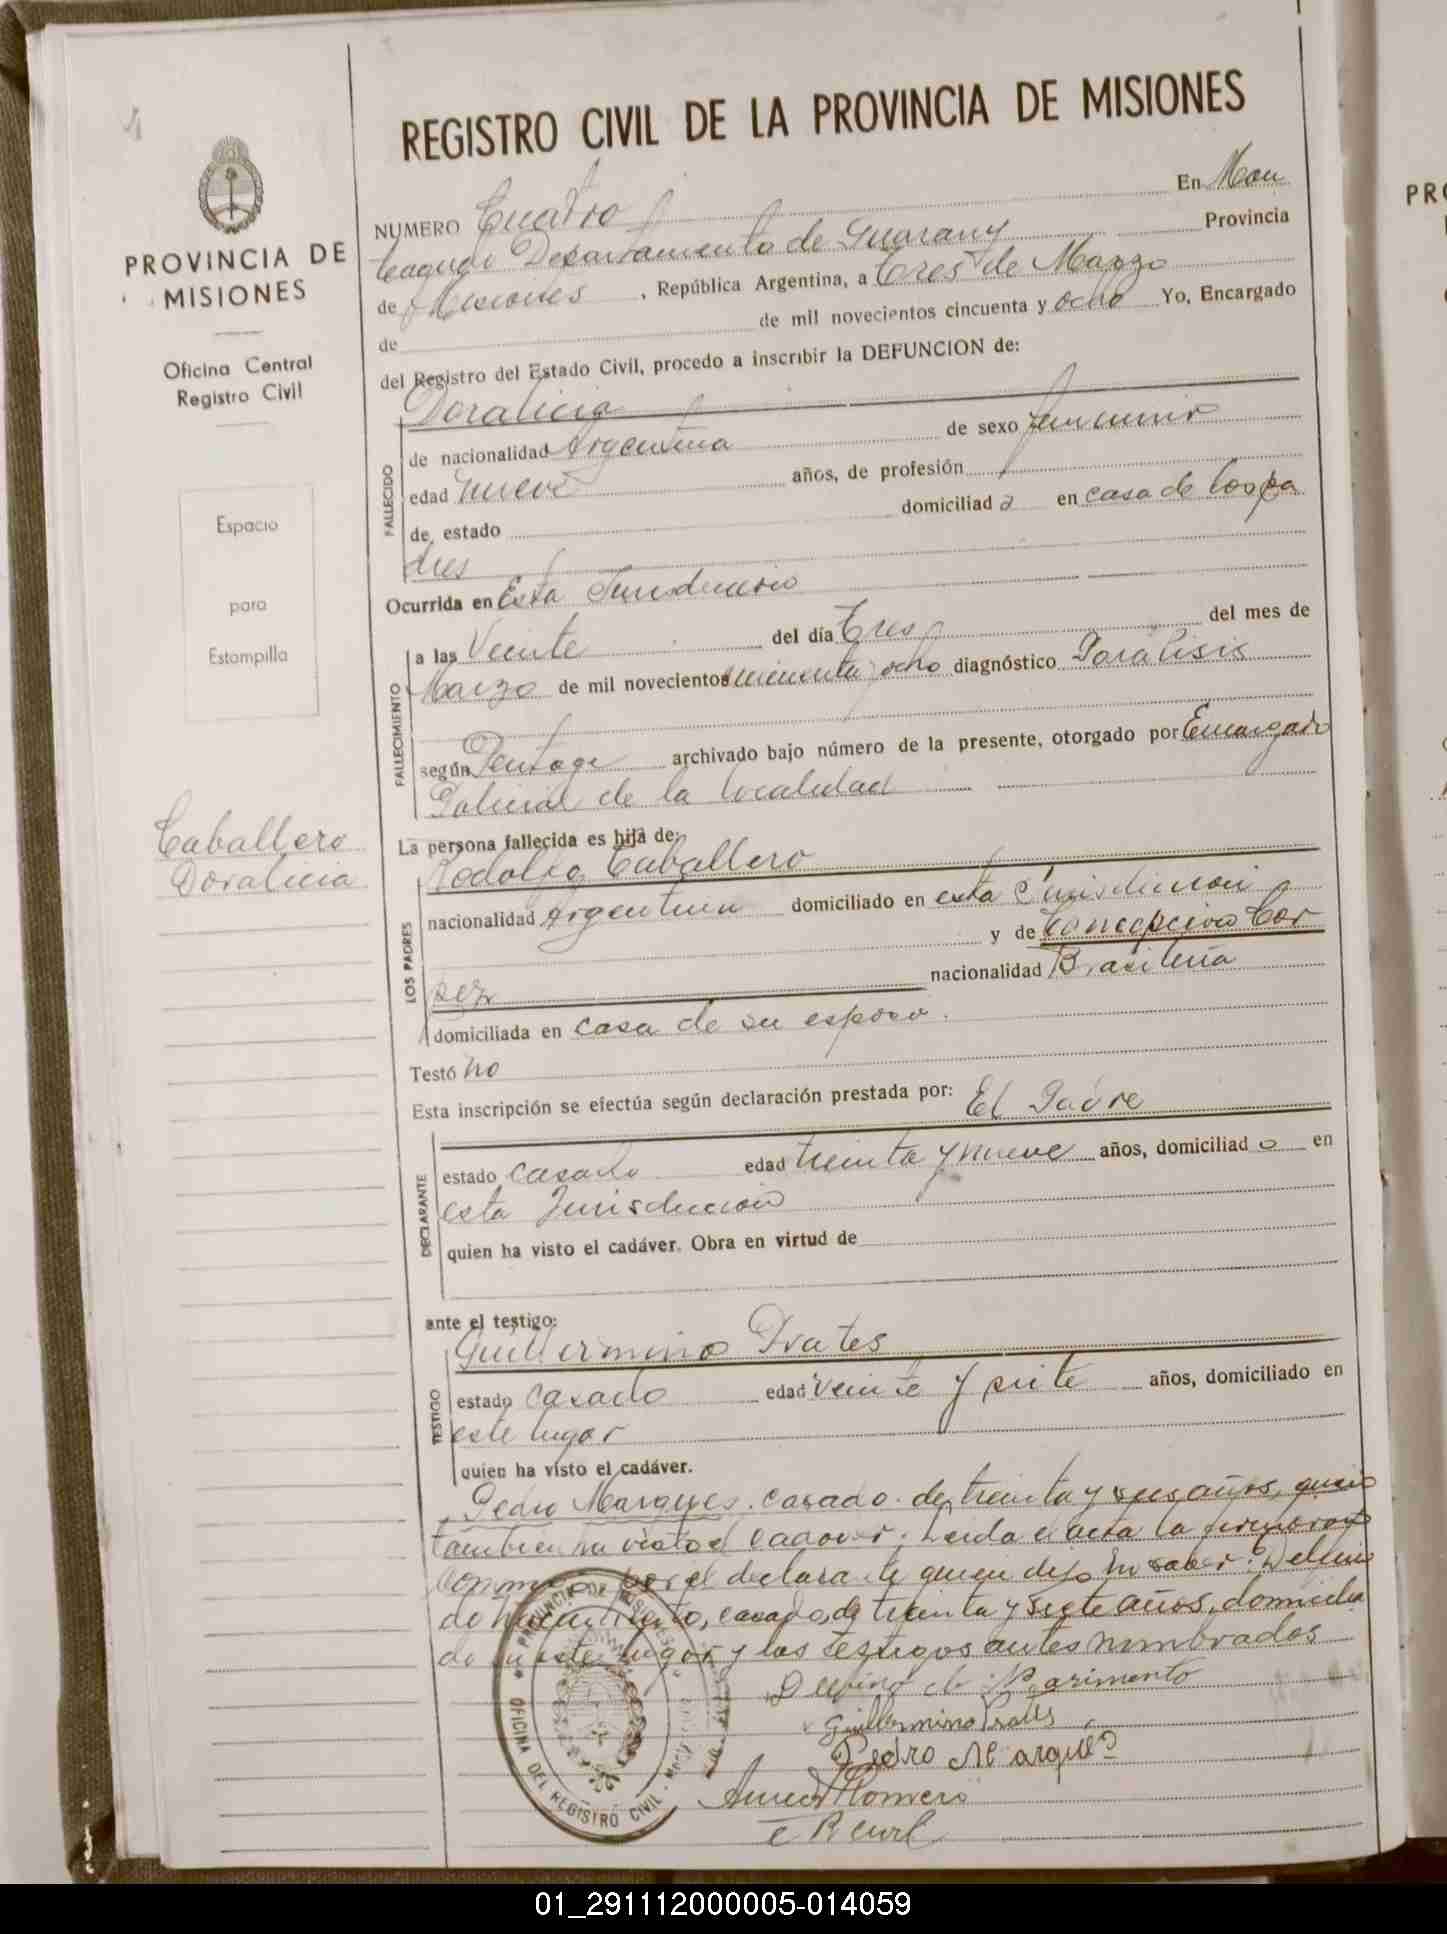 REGISTRO CIVIL DE LA PROVINCIA DE MISIONES
PROVINCIA DE
MISIONES
Oficina Central
Registro Civil
Espacio
para
Estampilla
Caballero
Doralicia
NUMERO Cuatro En Mon
teagudo Departamento de Guarany Provincia
de Misiones, República Argentina, a Tres de Marzo
de de mil novecientos cincuenta y ocho Yo, Encargado
del Registro del Estado Civil, procedo a inscribir la DEFUNCION de:
FALLECIDO
Doralicia
de nacionalidad Argentina de sexo femenino
edad nueve años, de profesión
de estado domiciliad a en casa de los pa
dres
Ocurrida en Esta Jurisdiccion
FALLECIMIENTO
a las Veinte del día Tres del mes de
Marzo de mil novecientos cincuenta y ocho diagnóstico Paralisis
según archivado bajo número de la presente, otorgado por Encargado
Policial de la localidad
La persona fallecida es hija de:
LOS PADRES
Rodolfo Caballero
nacionalidad Argentina domiciliado en esta Jurisdiccion
y de Concepcion Cor
nacionalidad Brasileña
domiciliada en casa de su esposo.
Testó no
Esta inscripción se efectúa según declaración prestada por: El Padre
DECLARANTE
estado casado edad treinta y nueve años, domiciliad o en
esta Jurisdiccion
quien ha visto el cadáver. Obra en virtud de
ante el testigo:
TESTIGO
Guillermino Prates
estado casado edad veinte y siete años, domiciliado en
este lugar
quien ha visto el cadáver.
Pedro Marques, casado de treinta y seis años, quien
tambien ha visto el cadaver. Leida el acta la firmaron
conmigo por el declarante quien dijo no saber: Delfini
do Nacimiento, casado, de treinta y siete años, domicilia
do en este lugar y los testigos antes nombrados
Guillermino Prates
Pedro Marqués
Romero
OFICINA DEL REGISTRO CIVIL
PROVINCIA DE MISIONES
01_291112000005-014059